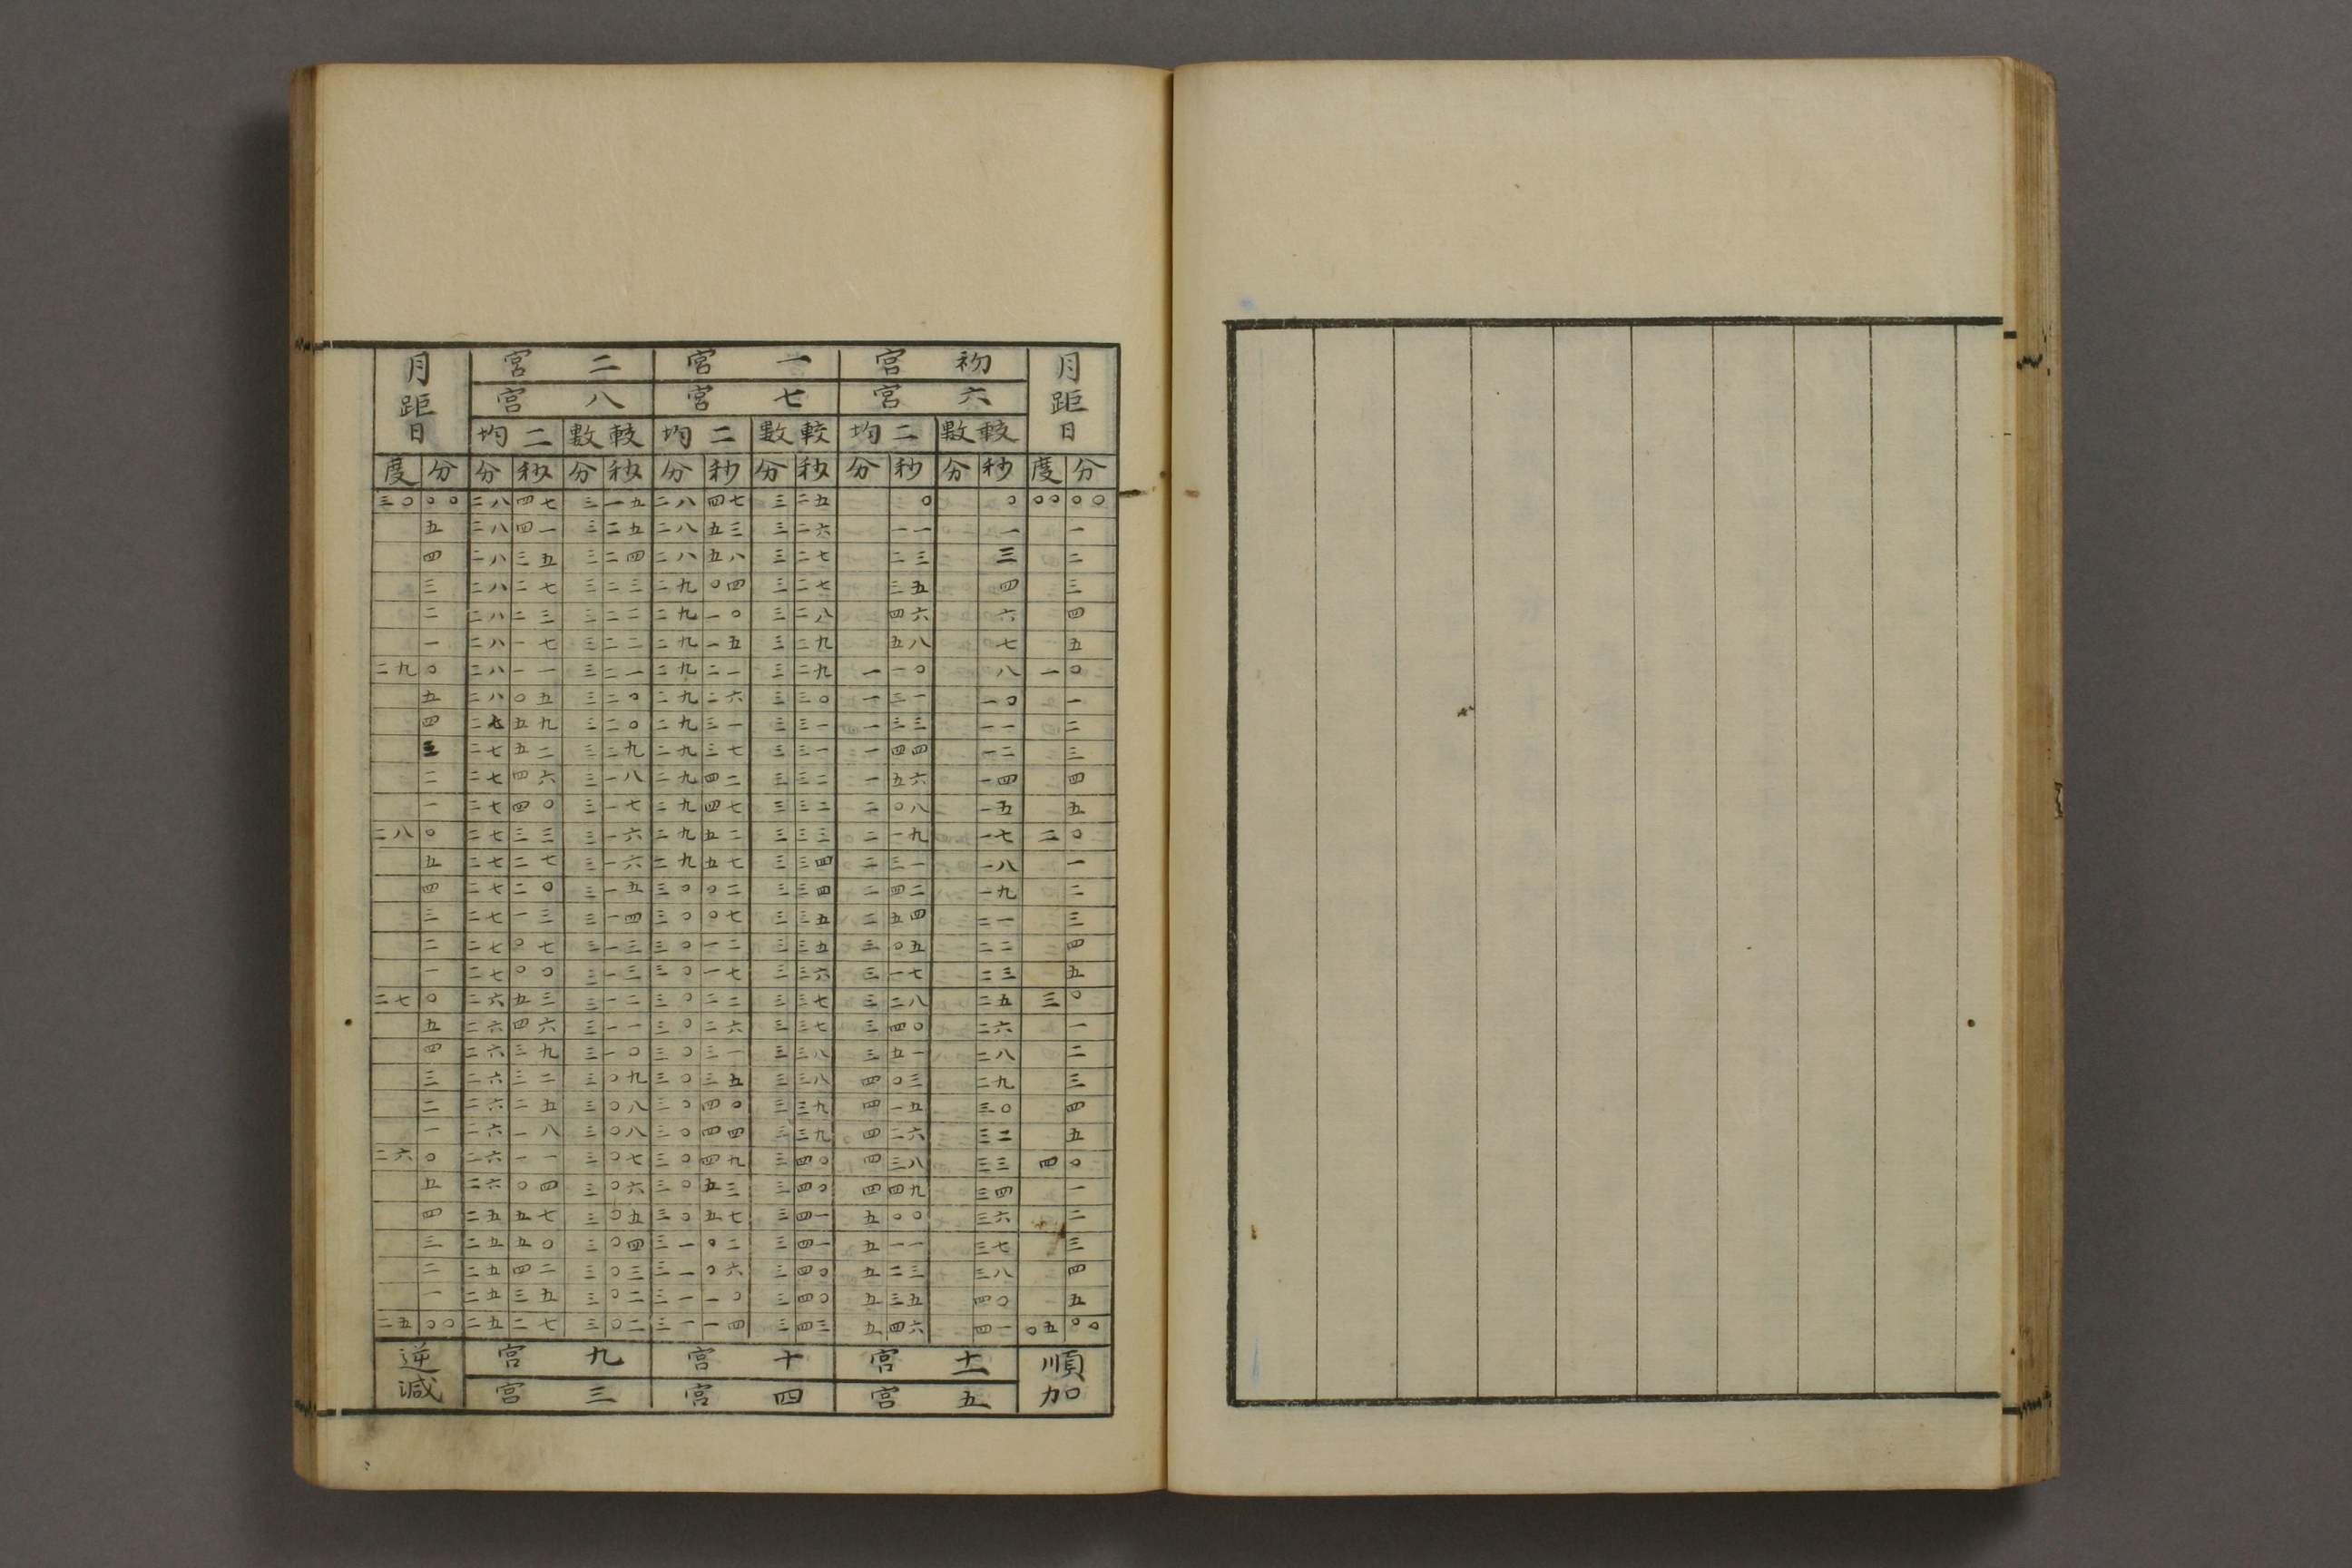 月距日 初宮 一宮 二宮 月距日
六宮 七宮 八宮
較數 二均 較數 二均 較數 二均
度 分 分 秒 分 秒 分 秒 分 秒 分 秒 分 秒 度 分
三〇 〇〇 二八 四七 三 一五 二八 四七 三 二五 〇 〇 〇〇 〇〇
五 二八 四一 三 二五 二八 五三 三 二六 一一 一 一
四 二八 三五 三 二四 二八 五八 三 二七 二三 三 二
三 二八 二七 三 二三 二九 〇四 三 二七 三五 四 三
二 二八 二三 三 二二 二九 一〇 三 二八 四六 六 四
一 二八 一七 三 二二 二九 一五 三 二九 五八 七 五
二九 〇 二八 一一 三 二一 二九 二一 三 二九 一 一〇 八 一 〇
五 二八 〇五 三 二〇 二九 二六 三 三〇 一 三一 一〇 一
四 二七 五九 三 二〇 二九 三一 三 三一 一 三三 一一 二
三 二七 五二 三 二九 二九 三七 三 三一 一 四四 一二 三
二 二七 四六 三 一八 二九 四二 三 三二 一 五六 一四 四
一 二七 四〇 三 一七 二九 四七 三 三二 二 〇八 一五 五
二八 〇 二七 三三 三 一六 二九 五二 三 三三 二 一九 一七 二 〇
五 二七 二七 三 一六 二九 五七 三 三四 二 三一 一八 一
四 二七 二〇 三 一五 三〇 〇二 三 三四 二 四二 一九 二
三 二七 一三 三 一四 三〇 〇七 三 三五 二 五四 二一 三
二 二七 〇七 三 一三 三〇 一二 三 三五 三 〇五 二二 四
一 二七 〇〇 三 一三 三〇 一七 三 三六 三 一七 二三 五
二七 〇 二六 五三 三 一二 三〇 二二 三 三七 三 二八 二五 三 〇
五 二六 四六 三 一一 三〇 二六 三 三七 三 四〇 二六 一
四 二六 三九 三 一〇 三〇 三一 三 三八 三 五一 二八 二
三 二六 三二 三 〇九 三〇 三五 三 三八 四 〇三 二九 三
二 二六 二五 三 〇八 三〇 四〇 三 三九 四 一五 三〇 四
一 二六 一八 三 〇八 三〇 四四 三 三九 四 二六 三二 五
二六 〇 二六 一一 三 〇七 三〇 四九 三 四〇 四 三八 三三 四 〇
五 二六 〇四 三 〇六 三〇 五三 三 四〇 四 四九 三四 一
四 二五 五七 三 〇五 三〇 五七 三 四一 五 〇〇 三六 二
三 二五 五〇 三 〇四 三一 〇二 三 四一 五 一一 三七 三
二 二五 四二 三 〇三 三一 〇六 三 四〇 五 二三 三八 四
一 二五 三五 三 〇二 三一 一〇 三 四〇 五 三五 四〇 五
二五 〇〇 二五 二七 三 〇二 三一 一四 三 四三 五 四六 四一 〇五 〇〇
順加 十一宮 十宮 九宮 逆減
五宮 四宮 三宮